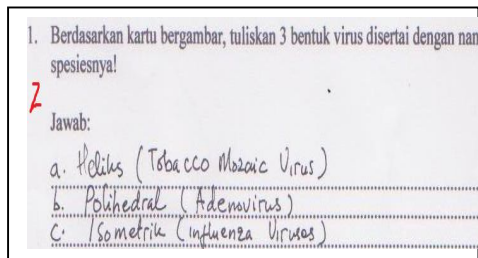 1. Berdasarkan kartu bergambar, tuliskan 3 bentuk virus disertai dengan nan
spesiesnya!
2
Jawab:
a. Heliks (Tobacco Mozaic Virus)
b. Polihedral (Adenovirus)
c. Isometrik (influenza Viruses)